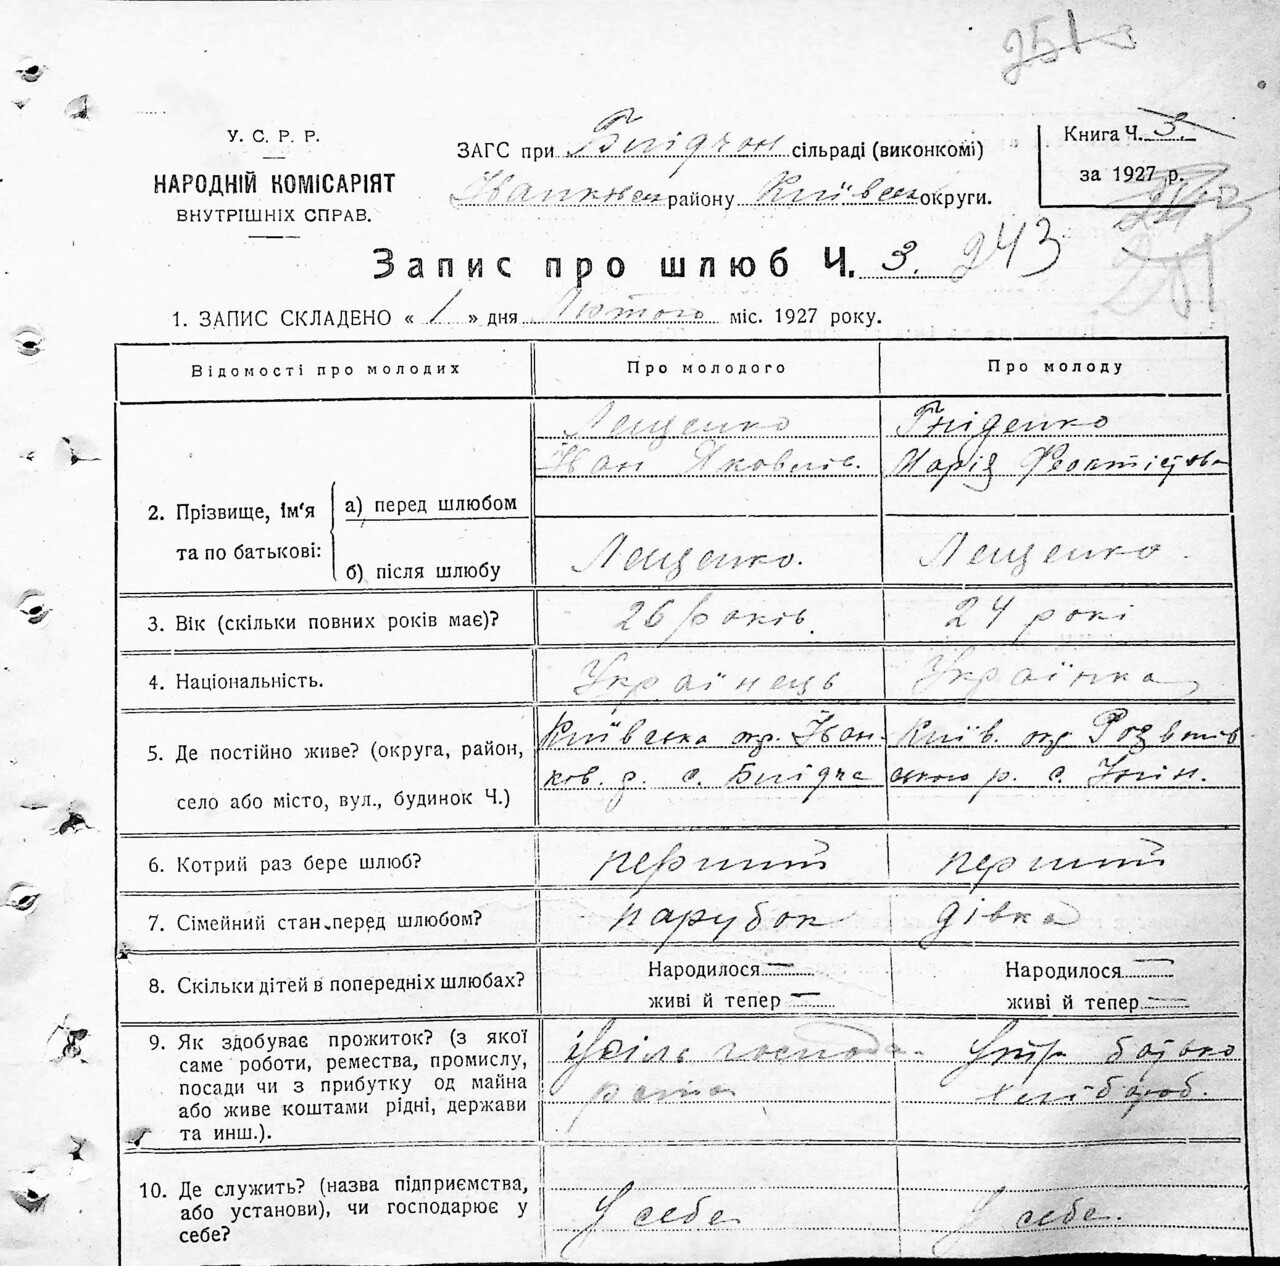 251
У. С. Р. Р.
НАРОДНІЙ КОМІСАРІЯТ
ВНУТРІШНІХ СПРАВ.
ЗАГС при сільраді (виконкомі)
району Київськ округи.
Книга Ч. 3.
за 1927 р.
Запис про шлюб Ч. 3. 243
1. ЗАПИС СКЛАДЕНО « 1 » дня Лютого міс. 1927 року.
Відомості про молодих Про молодого Про молоду
Лещенко Гніденко
Іван Яковлів. Марія
2. Прізвище, ім'я та по батькові:
а) перед шлюбом
б) після шлюбу Лещенко. Лещенко
3. Вік (скільки повних років має)? 26 років. 24 рокі
4. Національність. Українець Українка
5. Де постійно живе? (округа, район, село або місто, вул., будинок Ч.)
Київська окр. Іван- Київ. окр
ков. р. с. р. с.
6. Котрий раз бере шлюб? перший перший
7. Сімейний стан перед шлюбом? парубок дівка
8. Скільки дітей в попередніх шлюбах? Народилося — Народилося —
живі й тепер — живі й тепер —
9. Як здобуває прожиток? (з якої
саме роботи, ремества, промислу,
посади чи з прибутку од майна
або живе коштами рідні, держави
та инш.).
10. Де служить? (назва підприємства,
або установи), чи господарює у
себе?
У себе У себе.